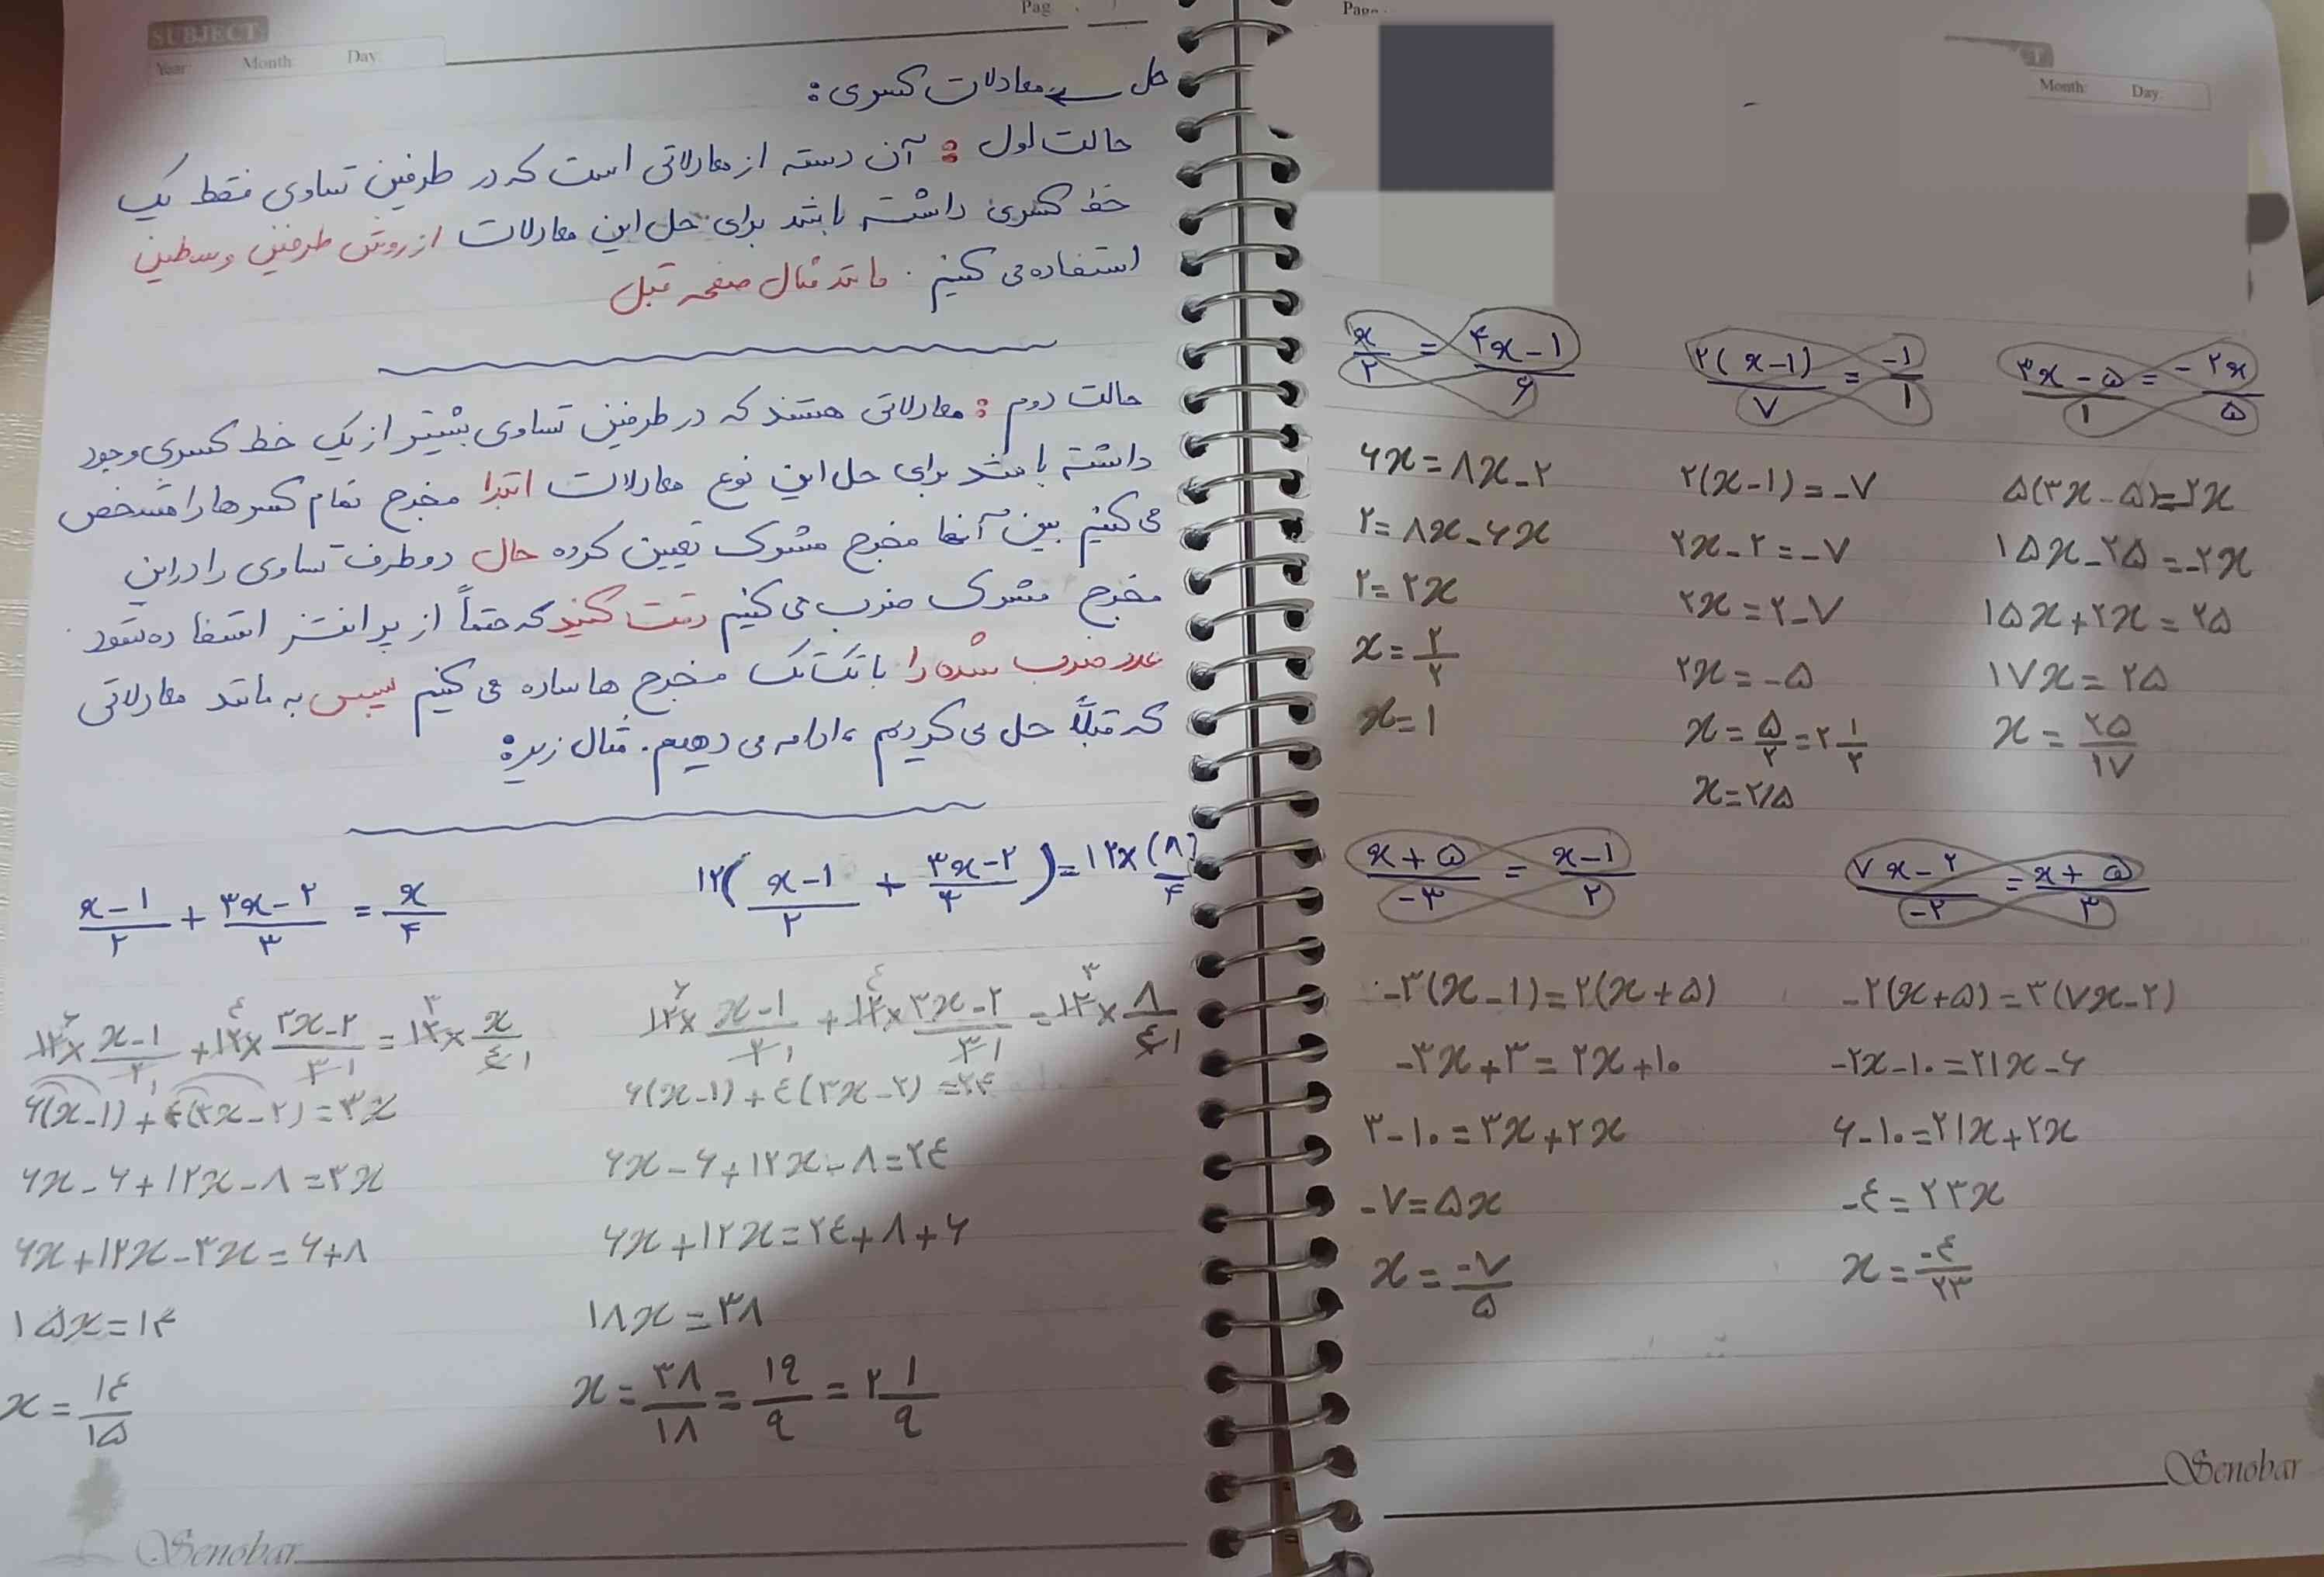 SUBJECT:
Year: Month: Day:
Pag
حل ← معادلات کسری:
حالت اول: آن دسته از معادلاتی است که در طرفین تساوی فقط یک
خط کسری داشته باشد برای حل این معادلات از روش طرفین وسطین
استفاده می کنیم. مانند مثال صفحه قبل
حالت دوم: معادلاتی هستند که در طرفین تساوی بیشتر از یک خط کسری وجود
داشته باشند برای حل این نوع معادلات ابتدا مخرج تمام کسرها را مشخص
می کنیم بین آنها مخرج مشترک تعیین کرده حال دو طرف تساوی را در این
مخرج مشترک ضرب می کنیم دقت کنید که حتماً از پرانتز استفاده شود.
عدد ضرب شده را با تک تک مخرج ها ساده می کنیم سپس به مانند معادلاتی
که قبلاً حل می کردیم، ادامه می دهیم. مثال زیر:
x-۱/۲ + ۳x-۲/۳ = x/۴
۱۲× x-۱/۲ + ۱۲× ۳x-۲/۳ = ۱۲× x/٤
۶(x-۱)+٤(۳x-۲)=۳x
۶x-۶+۱۲x-۸=۳x
۶x+۱۲x-۳x=۶+۸
۱۵x=۱۴
x=۱٤/۱۵
۱۲(x-۱/۲ + ۳x-۲/۳)=۱۲×(۸/۴)
۱۲× x-۱/۲ + ۱۲× ۳x-۲/۳ = ۱۲× ۸/٤
۶(x-۱)+٤(۳x-۲)=۲۴
۶x-۶+۱۲x-۸=۲٤
۶x+۱۲x=۲٤+۸+۶
۱۸x=۳۸
x=۳۸/۱۸=۱۹/۹=۲ ۱/۹
Senobar
Page
Month: Day:
x/۲ = ۴x-۱/۶
۶x=۸x-۲
۲=۸x-۶x
۲=۲x
x=۲/۲
x=۱
۲(x-۱)/۷ = -۱/۱
۲(x-۱)=-۷
۲x-۲=-۷
۲x=۲-۷
۲x=-۵
x=۵/۲=۲ ۱/۲
x=۲/۵
۳x-۵/۱ = -۲x/۵
۵(۳x-۵)=-۲x
۱۵x-۲۵=-۲x
۱۵x+۲x=۲۵
۱۷x=۲۵
x=۲۵/۱۷
x+۵/-۳ = x-۱/۲
-۳(x-۱)=۲(x+۵)
-۳x+۳=۲x+۱۰
۳-۱۰=۳x+۲x
-۷=۵x
x=-۷/۵
۷x-۲/-۲ = x+۵/۳
-۲(x+۵)=۳(۷x-۲)
-۲x-۱۰=۲۱x-۶
۶-۱۰=۲۱x+۲x
-٤=۲۳x
x=-٤/۲۳
Senobar